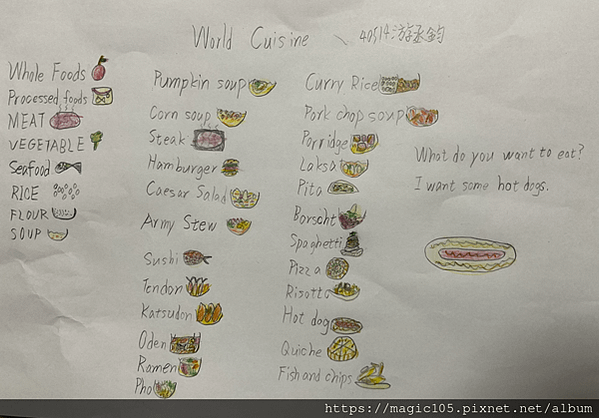 World Cuisine 、 40514 游丞鈞
Whole Foods
Processed foods
MEAT
VEGETABLE
Seafood
RICE
FLOUR
SOUP
Pumpkin soup
Corn soup
Steak
Hamburger
Caesar Salad
Army Stew
Sushi
Tendon
Katsudon
Oden
Ramen
Pho
Curry Rice
Pork chop soup
Porridge
Laksa
Pita
Borscht
Spaghetti
Pizza
Risotto
Hot dog
Quiche
Fish and chips
What do you want to eat?
I want some hot dogs.
https://magic105.pixnet.net/album